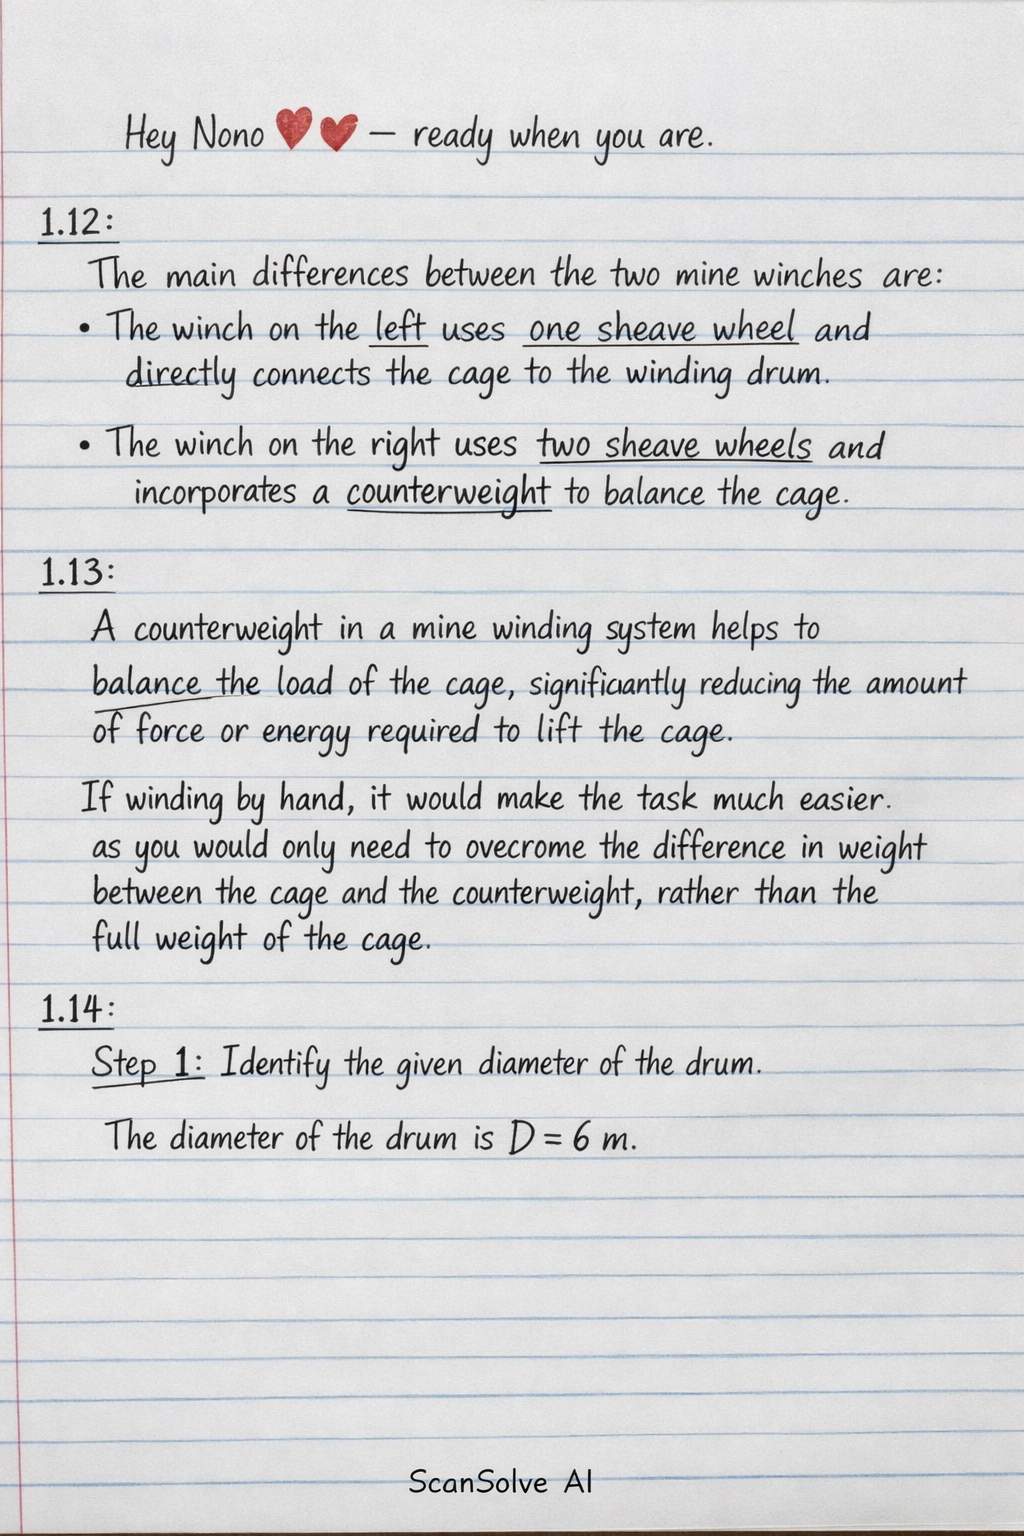 Hey Nono ❤❤ – ready when you are.
1.12:
The main differences between the two mine winches are:
• The winch on the left uses one sheave wheel and
directly connects the cage to the winding drum.
• The winch on the right uses two sheave wheels and
incorporates a counterweight to balance the cage.
1.13:
A counterweight in a mine winding system helps to
balance the load of the cage, significiantly reducing the amount
of force or energy required to lift the cage.
If winding by hand, it would make the task much easier.
as you would only need to ovecrome the difference in weight
between the cage and the counterweight, rather than the
full weight of the cage.
1.14:
Step 1: Identify the given diameter of the drum.
The diameter of the drum is D = 6 m.
ScanSolve AI